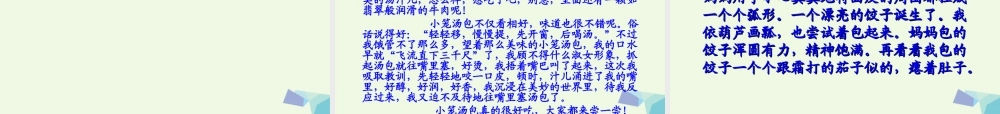 翡翠般润滑的牛肉呢！
小笼汤包不仅看相好，味道也很不错呢。俗
话说得好：“轻轻移，慢慢提，先开窗，后喝汤。”不过
我倒管不了那么多，望着那么美味的小笼汤包，我的口水
早就“飞流直下三千尺”了，我顾不得什么淑女形象，抓
起汤包就往嘴里塞，好烫，我捂着嘴巴叫了起来，这次我
吸取教训，先轻轻地咬一口皮，顿时，汁儿涌进了我的嘴
里，好醇，好润，好香，我沉浸在美妙的世界里，待我反
应过来，我又迫不及待地往嘴里塞汤包了。
小笼汤包真的很好吃，大家都来尝一尝！
一个个弧形、一个漂亮的饺子诞生了。我
依葫芦画瓢，也尝试着包起来。妈妈包的
饺子浑圆有力，精神饱满。再看看我包的
饺子一个个跟霜打的茄子似的，瘪着肚子、